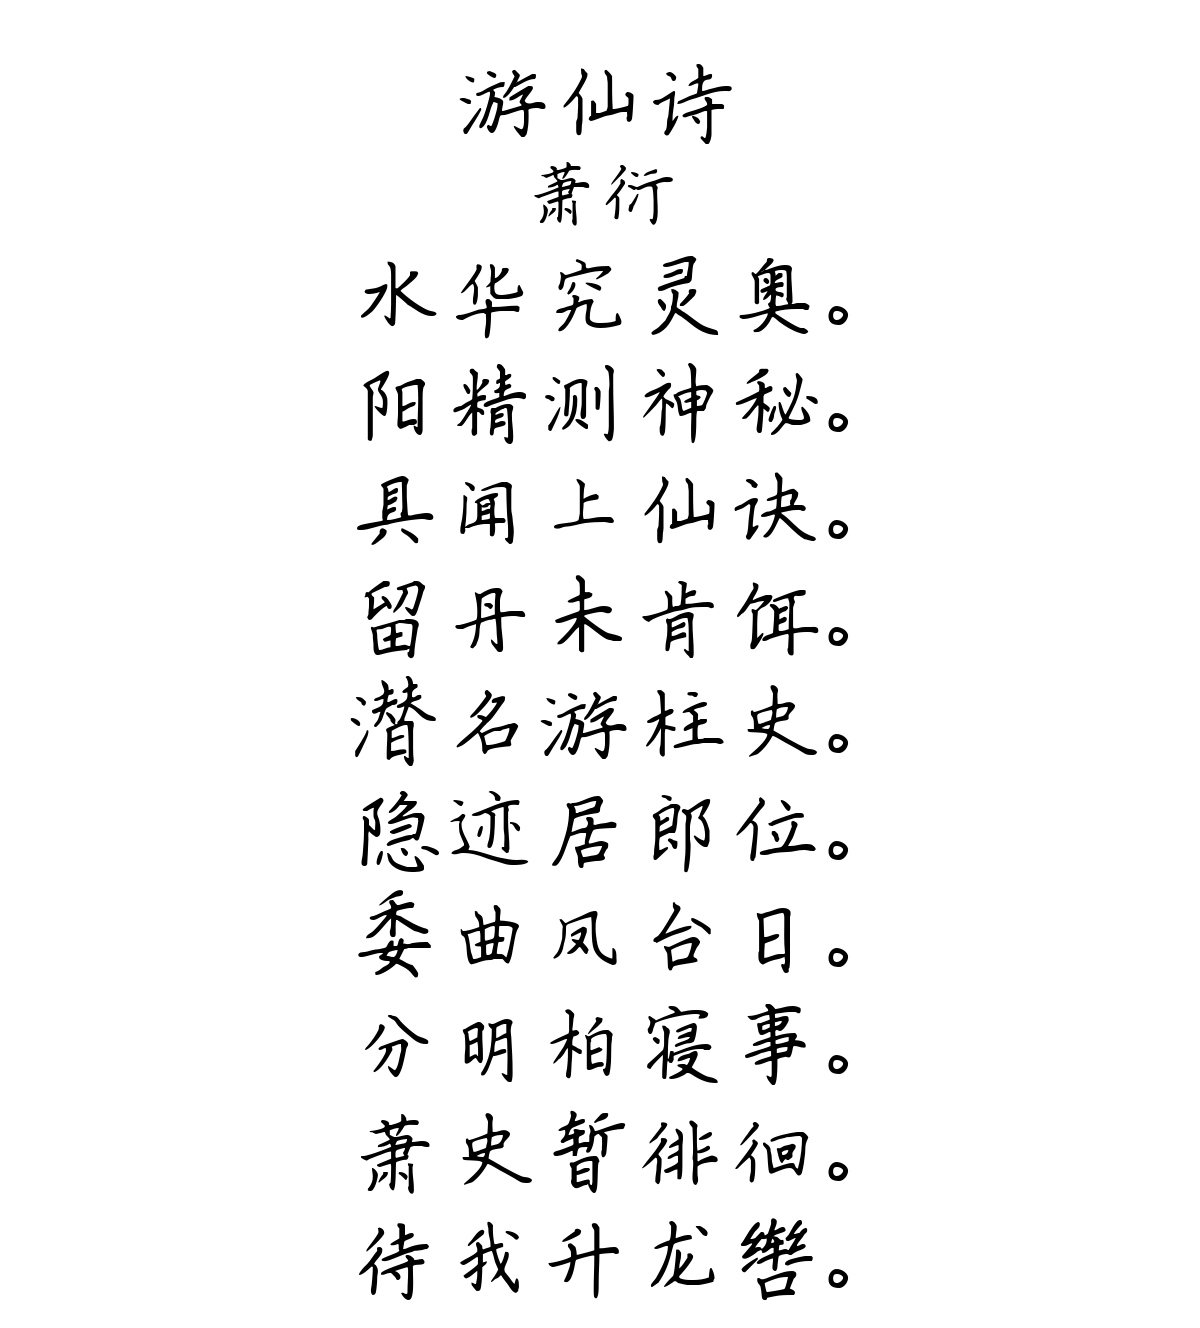 游仙诗
萧衍
水华究灵奥。
阳精测神秘。
具闻上仙诀。
留丹未肯饵。
潜名游柱史。
隐迹居郎位。
委曲凤台日。
分明柏寝事。
萧史暂徘徊。
待我升龙辔。